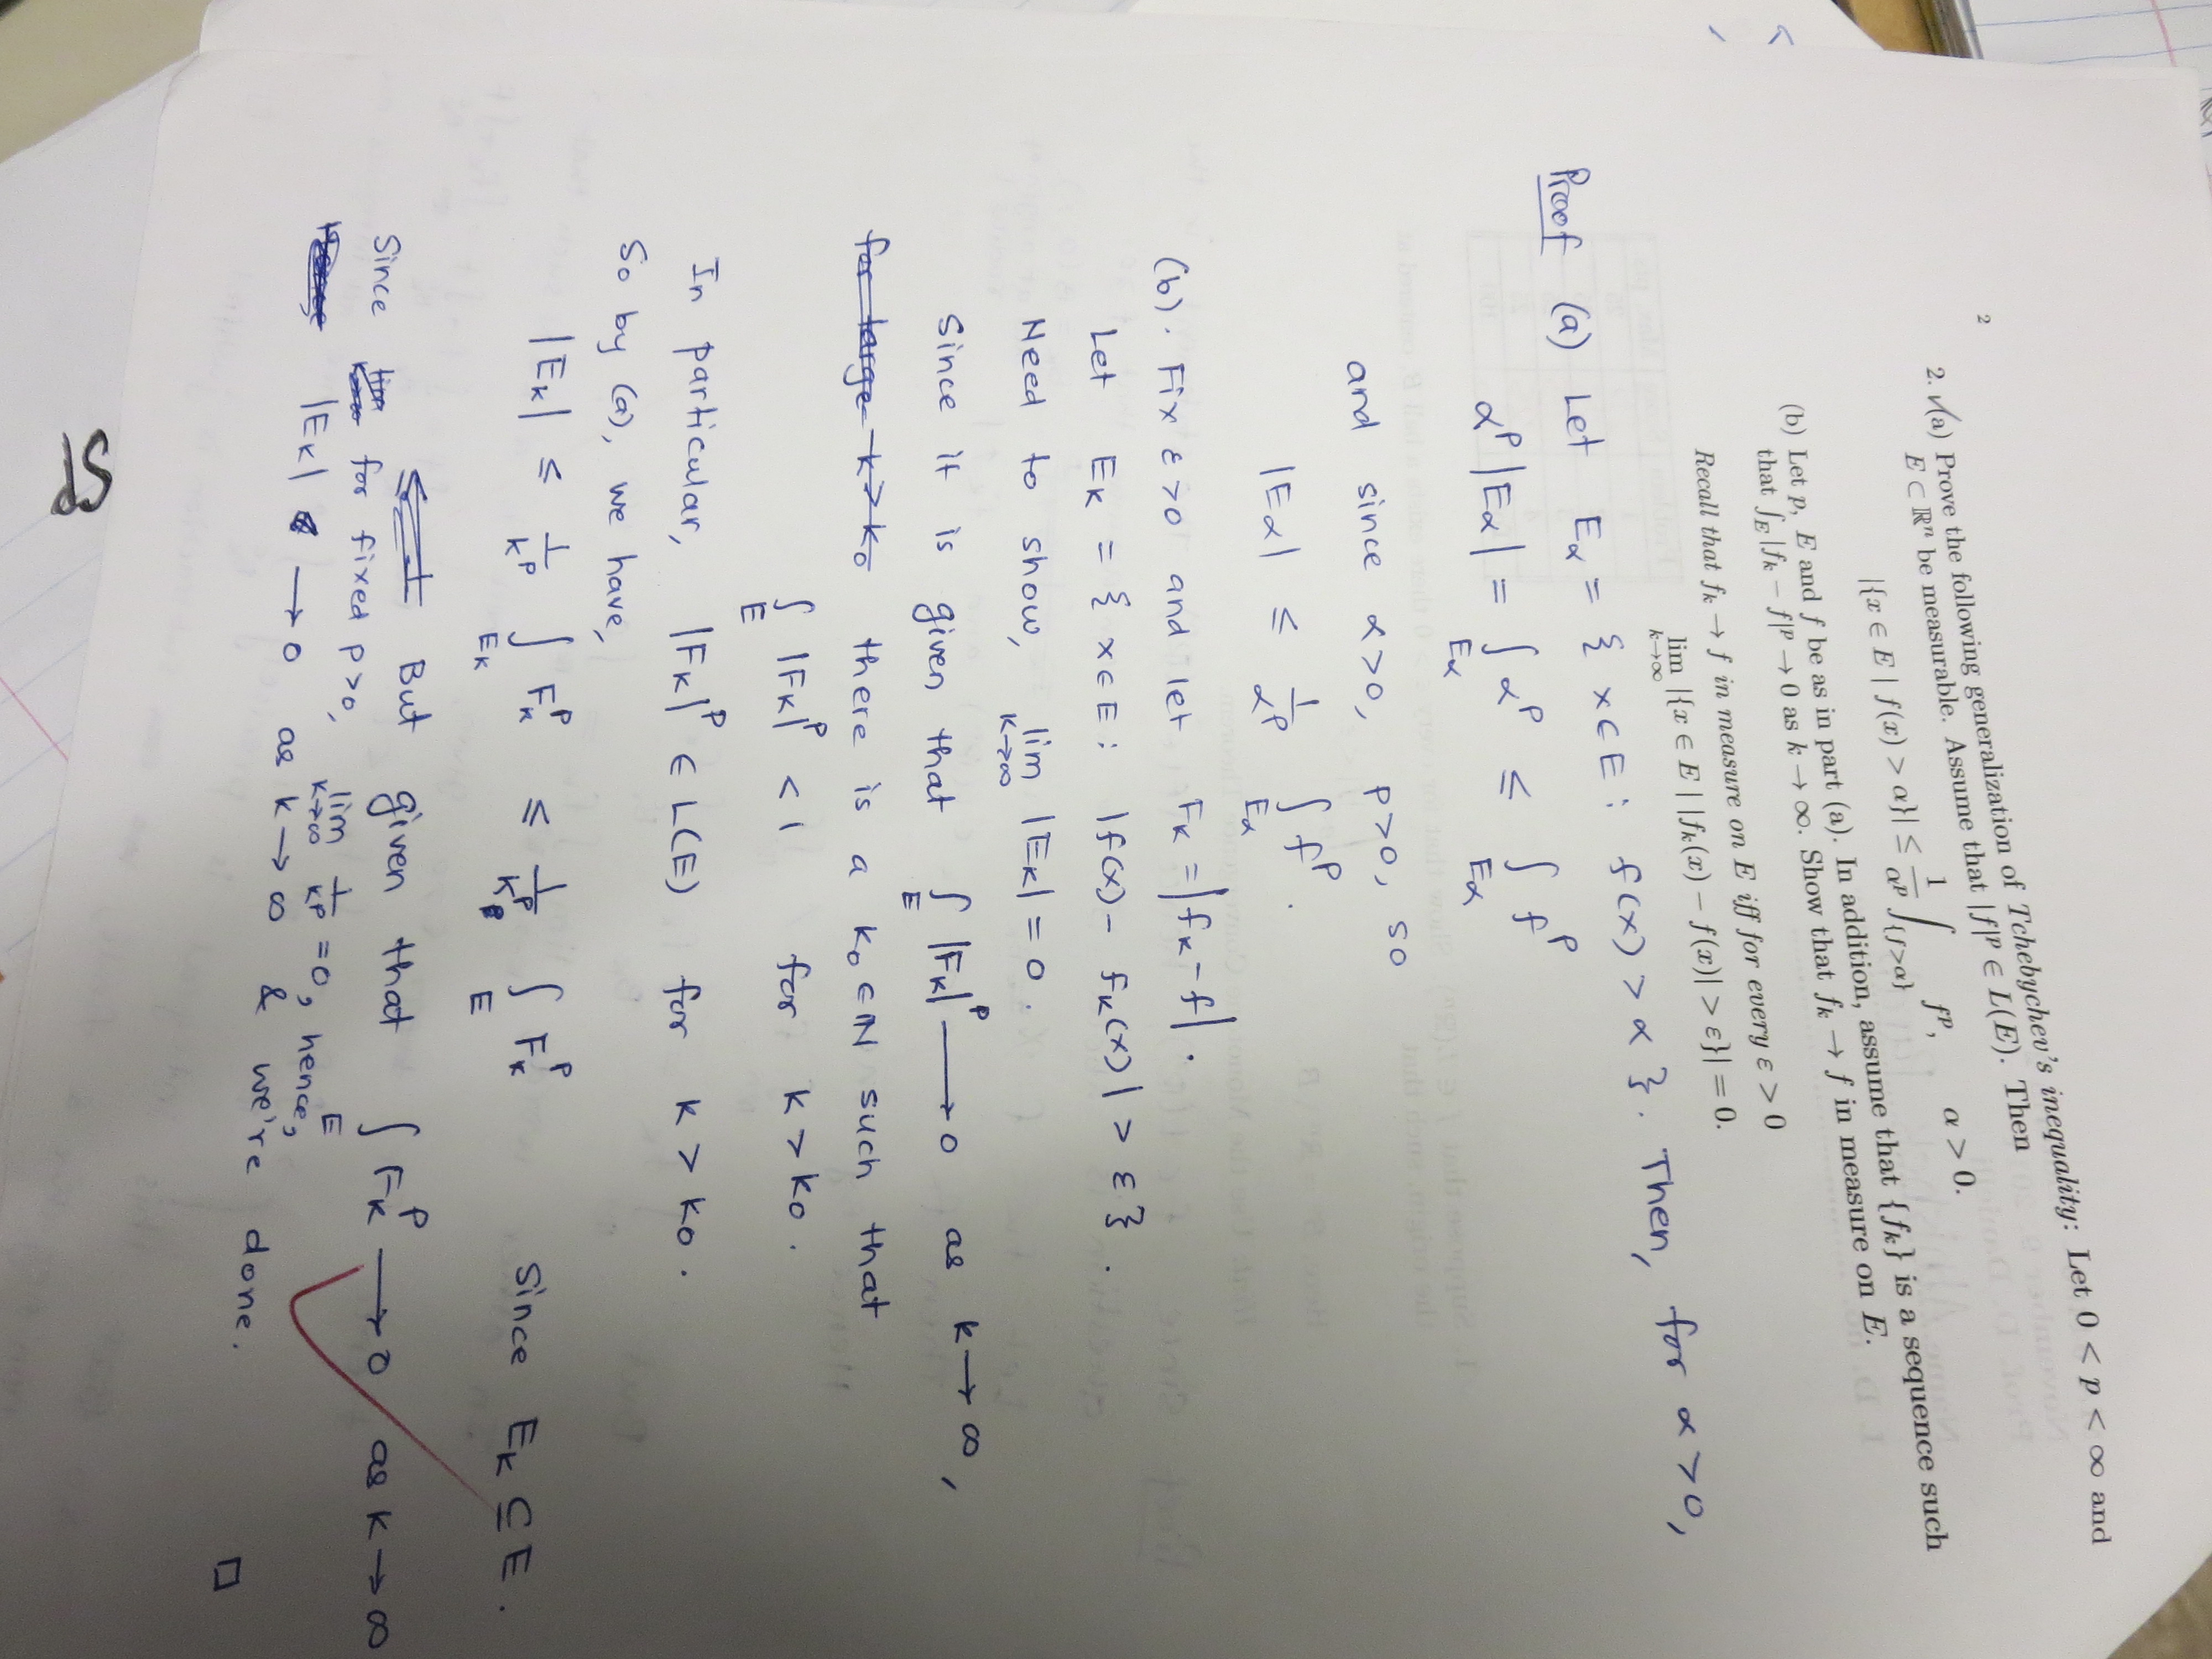 2
2. √(a) Prove the following generalization of Tchebychev's inequality: Let 0 < p < ∞ and
E ⊂ ℝⁿ be measurable. Assume that |f|ᵖ ∈ L(E). Then
|{x ∈ E | f(x) > α}| ≤ 1/αᵖ ∫_{f>α} fᵖ, α > 0.
(b) Let p, E and f be as in part (a). In addition, assume that {fₖ} is a sequence such
that ∫_E |fₖ − f|ᵖ → 0 as k → ∞. Show that fₖ → f in measure on E.
Recall that fₖ → f in measure on E iff for every ε > 0
lim_{k→∞} |{x ∈ E | |fₖ(x) − f(x)| > ε}| = 0.
Proof (a) Let E_α = { x ∈ E : f(x) > α }. Then, for α > 0,
αᵖ |E_α| = ∫_{E_α} αᵖ ≤ ∫_{E_α} fᵖ
and since α > 0, p > 0, so
|E_α| ≤ 1/αᵖ ∫_{E_α} fᵖ.
(b). Fix ε > 0 and let Fₖ = |fₖ - f|.
Let Eₖ = { x ∈ E : |f(x) - fₖ(x)| > ε }.
Need to show, lim_{k→∞} |Eₖ| = 0.
Since it is given that ∫_E |Fₖ|ᵖ → 0 as k → ∞,
for large k > k₀ there is a k₀ ∈ ℕ such that
∫_E |Fₖ|ᵖ < 1 for k > k₀.
In particular, |Fₖ|ᵖ ∈ L(E) for k > k₀.
So by (a), we have,
|Eₖ| ≤ 1/kᵖ ∫_{Eₖ} Fₖᵖ ≤ 1/kᵖ ∫_E Fₖᵖ since Eₖ ⊆ E.
But given that ∫_E Fₖᵖ → 0 as k → ∞
Since for fixed p > 0, lim_{k→∞} 1/kᵖ = 0, hence,
|Eₖ| → 0 as k → ∞ & we're done. □